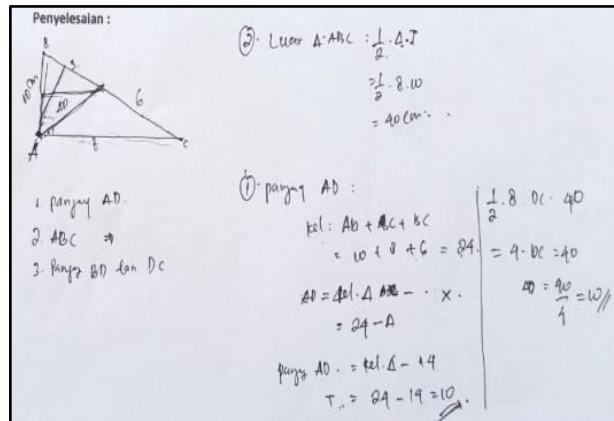 Penyelesaian :
B
10 cm
3
AD
6
A
8
C
1. panjang AD.
2. ABC ⇒
3. Panjang BD dan DC
②. Luas Δ ABC : 1/2 . A . T
= 1/2 . 8 . 10
= 40 cm
①. panjang AD :
kel : AB + AC + BC
= 10 + 8 + 6 = 24.
AD = kel . Δ
= 24 - A
panjang AD . = kel . Δ - 14
= 24 - 14 = 10
1/2 . 8 . DC . 40
= 4 . DC = 40
= 40/4 = 10 //